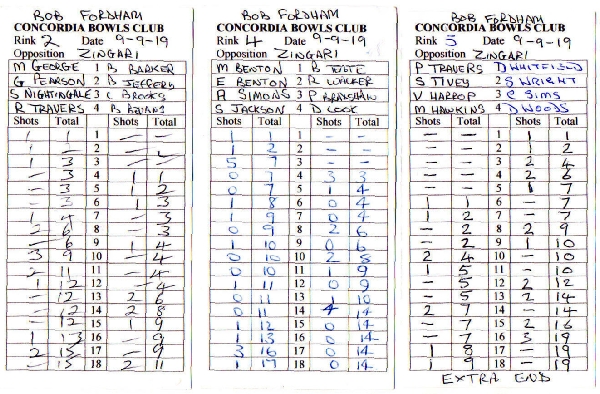 BOB FORDHAM
CONCORDIA BOWLS CLUB
Rink 2 Date 9-9-19
Opposition ZINGARI
M GEORGE 1 B BARKER
G PEARSON 2 D JEFFERY
S NIGHTINGALE 3 C BROOKS
R TRAVERS 4
Shots Total Shots Total
- - 1 - -
1 1 2 - -
3 3 - -
- 3 4 1 1
- 3 5 1 2
- 3 6 1 3
1 4 7 - 3
2 6 8 - 3
- 6 9 1 4
3 9 10 - 4
2 11 11 - 4
1 12 12 - 4
- 12 13 2 6
- 12 14 2 8
- 12 15 1 9
1 13 16 - 9
2 15 17 - 9
- 15 18 2 11
BOB FORDHAM
CONCORDIA BOWLS CLUB
Rink 4 Date 9-9-19
Opposition ZINGARI
M BENTON 1 B
E BENTON 2 R WALKER
A SIMONS 3 P BRADSHAW
S JACKSON 4 D COOK
Shots Total Shots Total
1 1 1 - -
1 2 2 - -
5 7 3 - -
0 7 4 3 3
0 7 5 1 4
1 8 6 0 4
1 9 7 0 4
0 9 8 2 6
1 10 9 0 6
0 10 10 2 8
0 10 11 1 9
1 11 12 0 9
0 11 13 1 10
0 11 14 4 14
1 12 15 0 14
1 13 16 0 14
3 16 17 0 14
1 17 18 0 14
BOB FORDHAM
CONCORDIA BOWLS CLUB
Rink 5 Date 9-9-19
Opposition ZINGARI
P TRAVERS 1 D WHITEFIELD
S TIVEY 2 S WRIGHT
V HARROP 3 C SIMS
M HAWKINS 4 D WOODS
Shots Total Shots Total
- - 1 1 1
- - 2 1 2
- - 3 2 4
- - 4 2 6
- - 5 1 7
1 1 6 - 7
1 2 7 - 7
- 2 8 2 9
- 2 9 1 10
2 4 10 - 10
1 5 11 - 10
- 5 12 2 12
- 5 13 2 14
2 7 14 - 14
- 7 15 2 16
- 7 16 3 19
1 8 17 - 19
1 9 18 - 19
EXTRA END